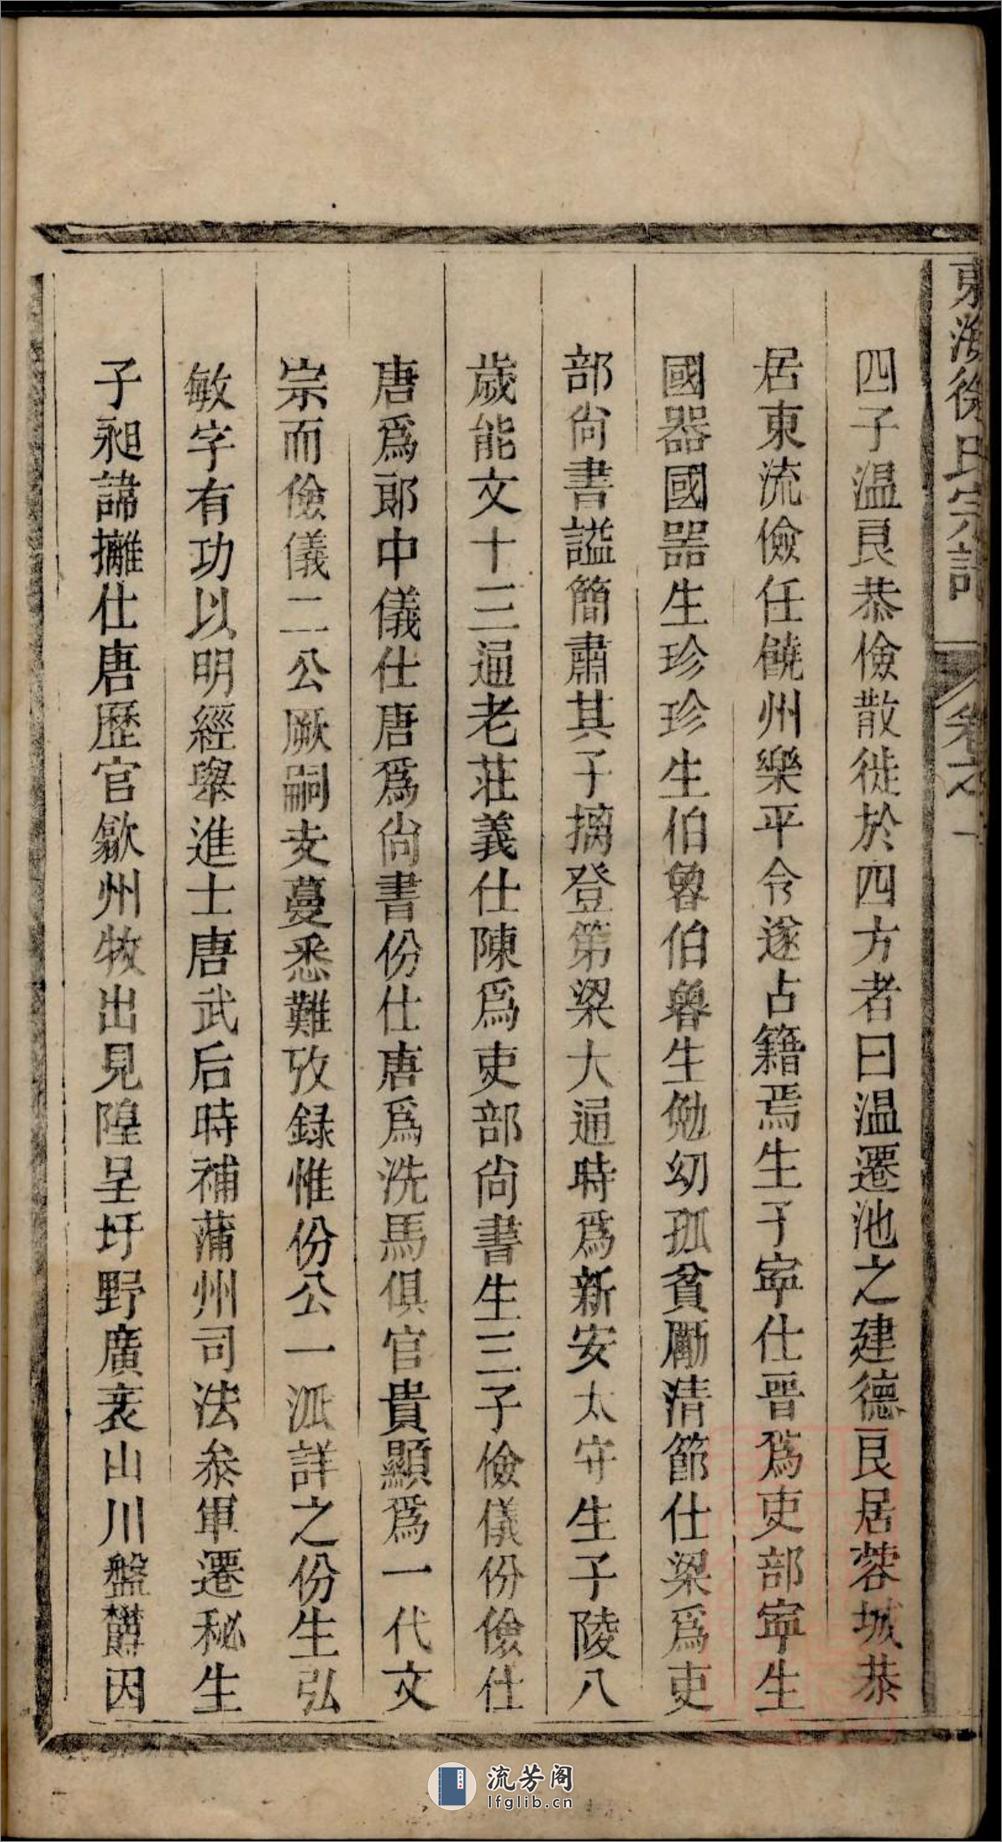 東海徐氏宗譜
卷之一
四子温良恭儉散徙於四方者曰温遷池之建德良居蓉城恭
居東流儉任饒州樂平令遂占籍焉生子寧仕晋爲吏部寧生
國器國器生珍珍生伯魯伯魯生勉幼孤貧勵清節仕梁爲吏
部尚書謚簡肅其子摛登第梁大通時爲新安太守生子陵八
歲能文十三通老莊義仕陳爲吏部尚書生三子儉儀份儉仕
唐爲郎中儀仕唐爲尚書份仕唐爲洗馬俱官貴顯爲一代文
宗而儉儀二公厥嗣支蔓悉難攷録惟份公一派詳之份生弘
敏字有功以明經舉進士唐武后時補蒲州司法叅軍遷秘生
子昶諱擁仕唐歷官歙州牧出見隍呈圩野廣袤山川盤欝因
流芳阁
lfglib.cn